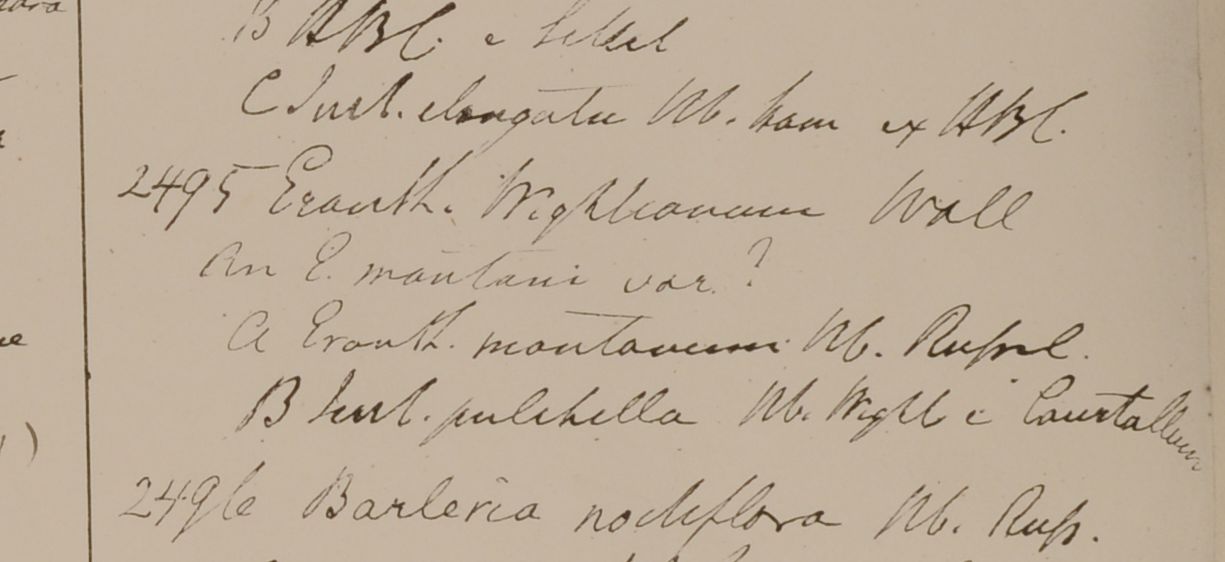 B HBC. e Sillet
C Just. elongata Hb. Ham ex HBC.
2495 Eranth. Wightianum Wall
An E. montani var.?
a Eranth. montanum Hb. Russel.
B Just. pulchella Hb. Wight e Courtallum
2496 Barleria nodiflora Hb. Russ.